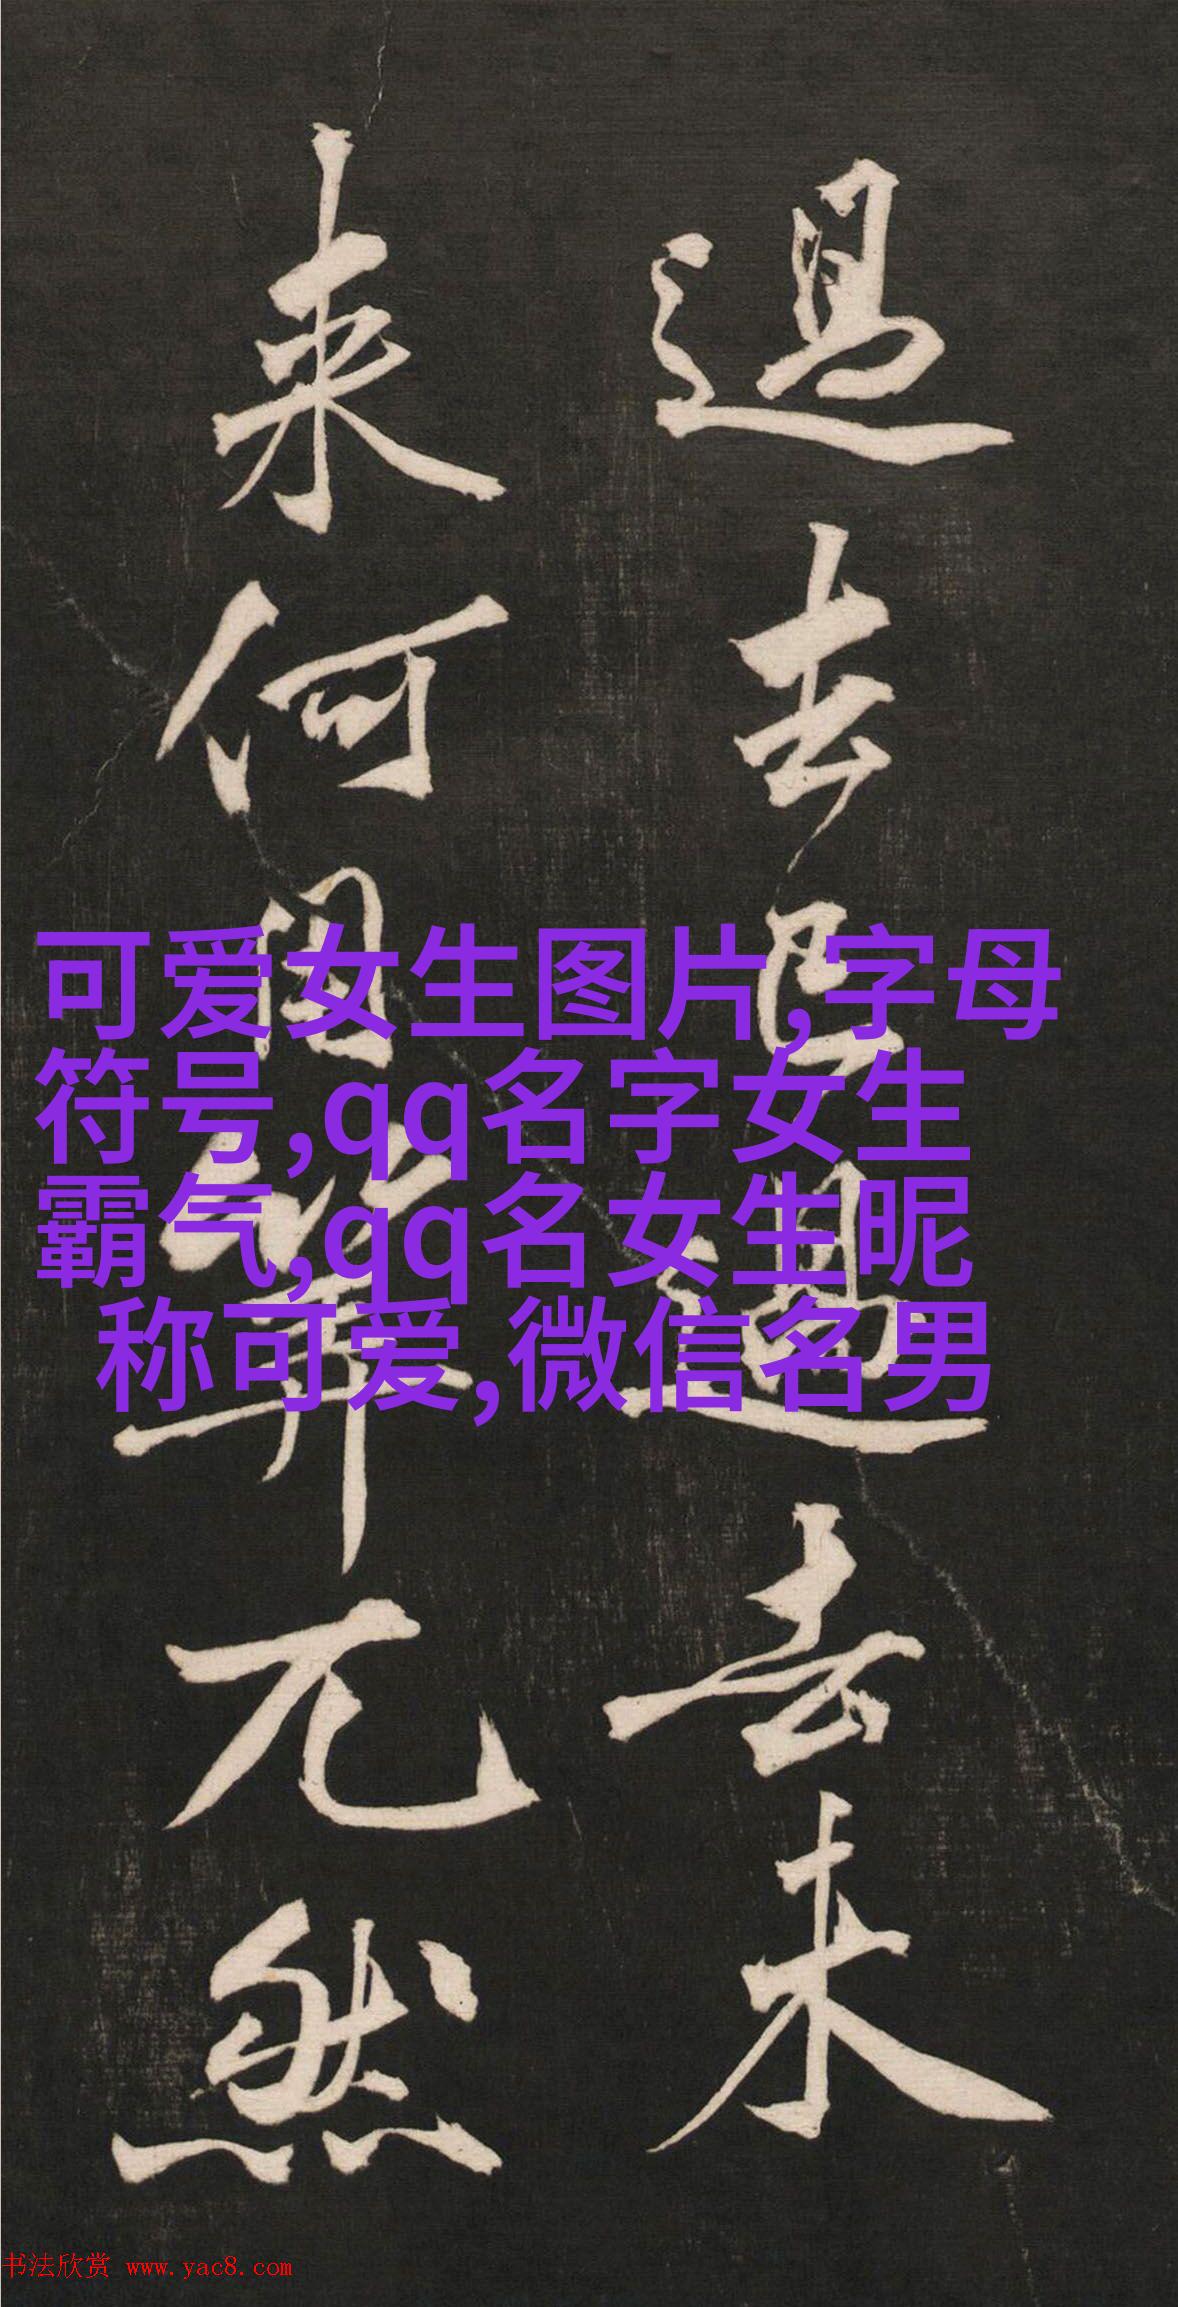 過去已過去未
来何用算兀然
可爱女生图片,字母
符号,qq名字女生
霸气,qq名女生昵
称可爱,微信名男
书法欣赏 www.yac8.com